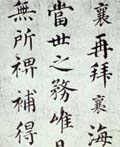 襄再拜襄海
當世之務唯
無所裨補得